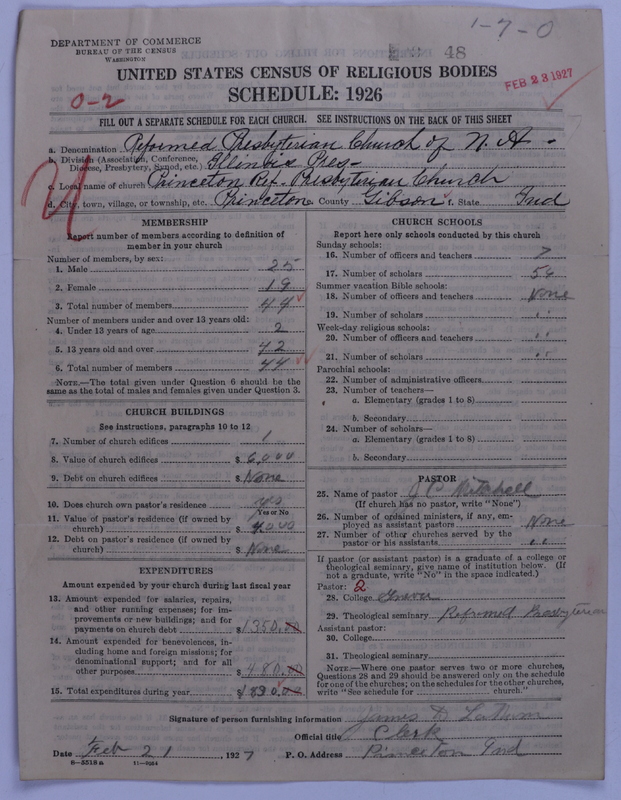 1-7-0
DEPARTMENT OF COMMERCE
BUREAU OF THE CENSUS
WASHINGTON
48
UNITED STATES CENSUS OF RELIGIOUS BODIES
FEB 23 1927
SCHEDULE: 1926
0-2
FILL OUT A SEPARATE SCHEDULE FOR EACH CHURCH. SEE INSTRUCTIONS ON THE BACK OF THIS SHEET
a. Denomination Reformed Presbyterian Church of N. A.
b. Division (Association, Conference, Diocese, Presbytery, Synod, etc.) Illinois Pres-
c. Local name of church Princeton Ref. Presbyterian Church
d. City, town, village, or township, etc. Princeton e. County Gibson f. State Ind
MEMBERSHIP
Report number of members according to definition of
member in your church
Number of members, by sex:
1. Male 25
2. Female 19
3. Total number of members 44
Number of members under and over 13 years old:
4. Under 13 years of age 2
5. 13 years old and over 42
6. Total number of members 44
NOTE.—The total given under Question 6 should be the
same as the total of males and females given under Question 3.
CHURCH BUILDINGS
See instructions, paragraphs 10 to 12
7. Number of church edifices 1
8. Value of church edifices $ 6,000
9. Debt on church edifices $ None
10. Does church own pastor's residence yes
Yes or No
11. Value of pastor's residence (if owned by
church) $ 4000
12. Debt on pastor's residence (if owned by
church) $ None
EXPENDITURES
Amount expended by your church during last fiscal year
13. Amount expended for salaries, repairs,
and other running expenses; for im-
provements or new buildings; and for
payments on church debt $ 1350.00
14. Amount expended for benevolences, in-
cluding home and foreign missions; for
denominational support; and for all
other purposes $ 480.00
15. Total expenditures during year $ 1830.00
CHURCH SCHOOLS
Report here only schools conducted by this church
Sunday schools:
16. Number of officers and teachers 7
17. Number of scholars 54
Summer vacation Bible schools:
18. Number of officers and teachers None
19. Number of scholars "
Week-day religious schools:
20. Number of officers and teachers "
21. Number of scholars "
Parochial schools:
22. Number of administrative officers
23. Number of teachers—
a. Elementary (grades 1 to 8)
b. Secondary
24. Number of scholars—
a. Elementary (grades 1 to 8)
b. Secondary
PASTOR
25. Name of pastor J C Mitchell
(If church has no pastor, write "None")
26. Number of ordained ministers, if any, em-
ployed as assistant pastors None
27. Number of other churches served by the
pastor or his assistants "
If pastor (or assistant pastor) is a graduate of a college or
theological seminary, give name of institution below. (If
not a graduate, write "No" in the space indicated.)
Pastor: 2
28. College
29. Theological seminary Reformed Presbyterian
Assistant pastor:
30. College
31. Theological seminary
NOTE.—Where one pastor serves two or more churches,
Questions 28 and 29 should be answered only on the schedule
for one of the churches; on the schedules for the other churches,
write "See schedule for church."
Signature of person furnishing information James D
Official title Clerk
Date Feb 21 1927 P. O. Address Princeton Ind